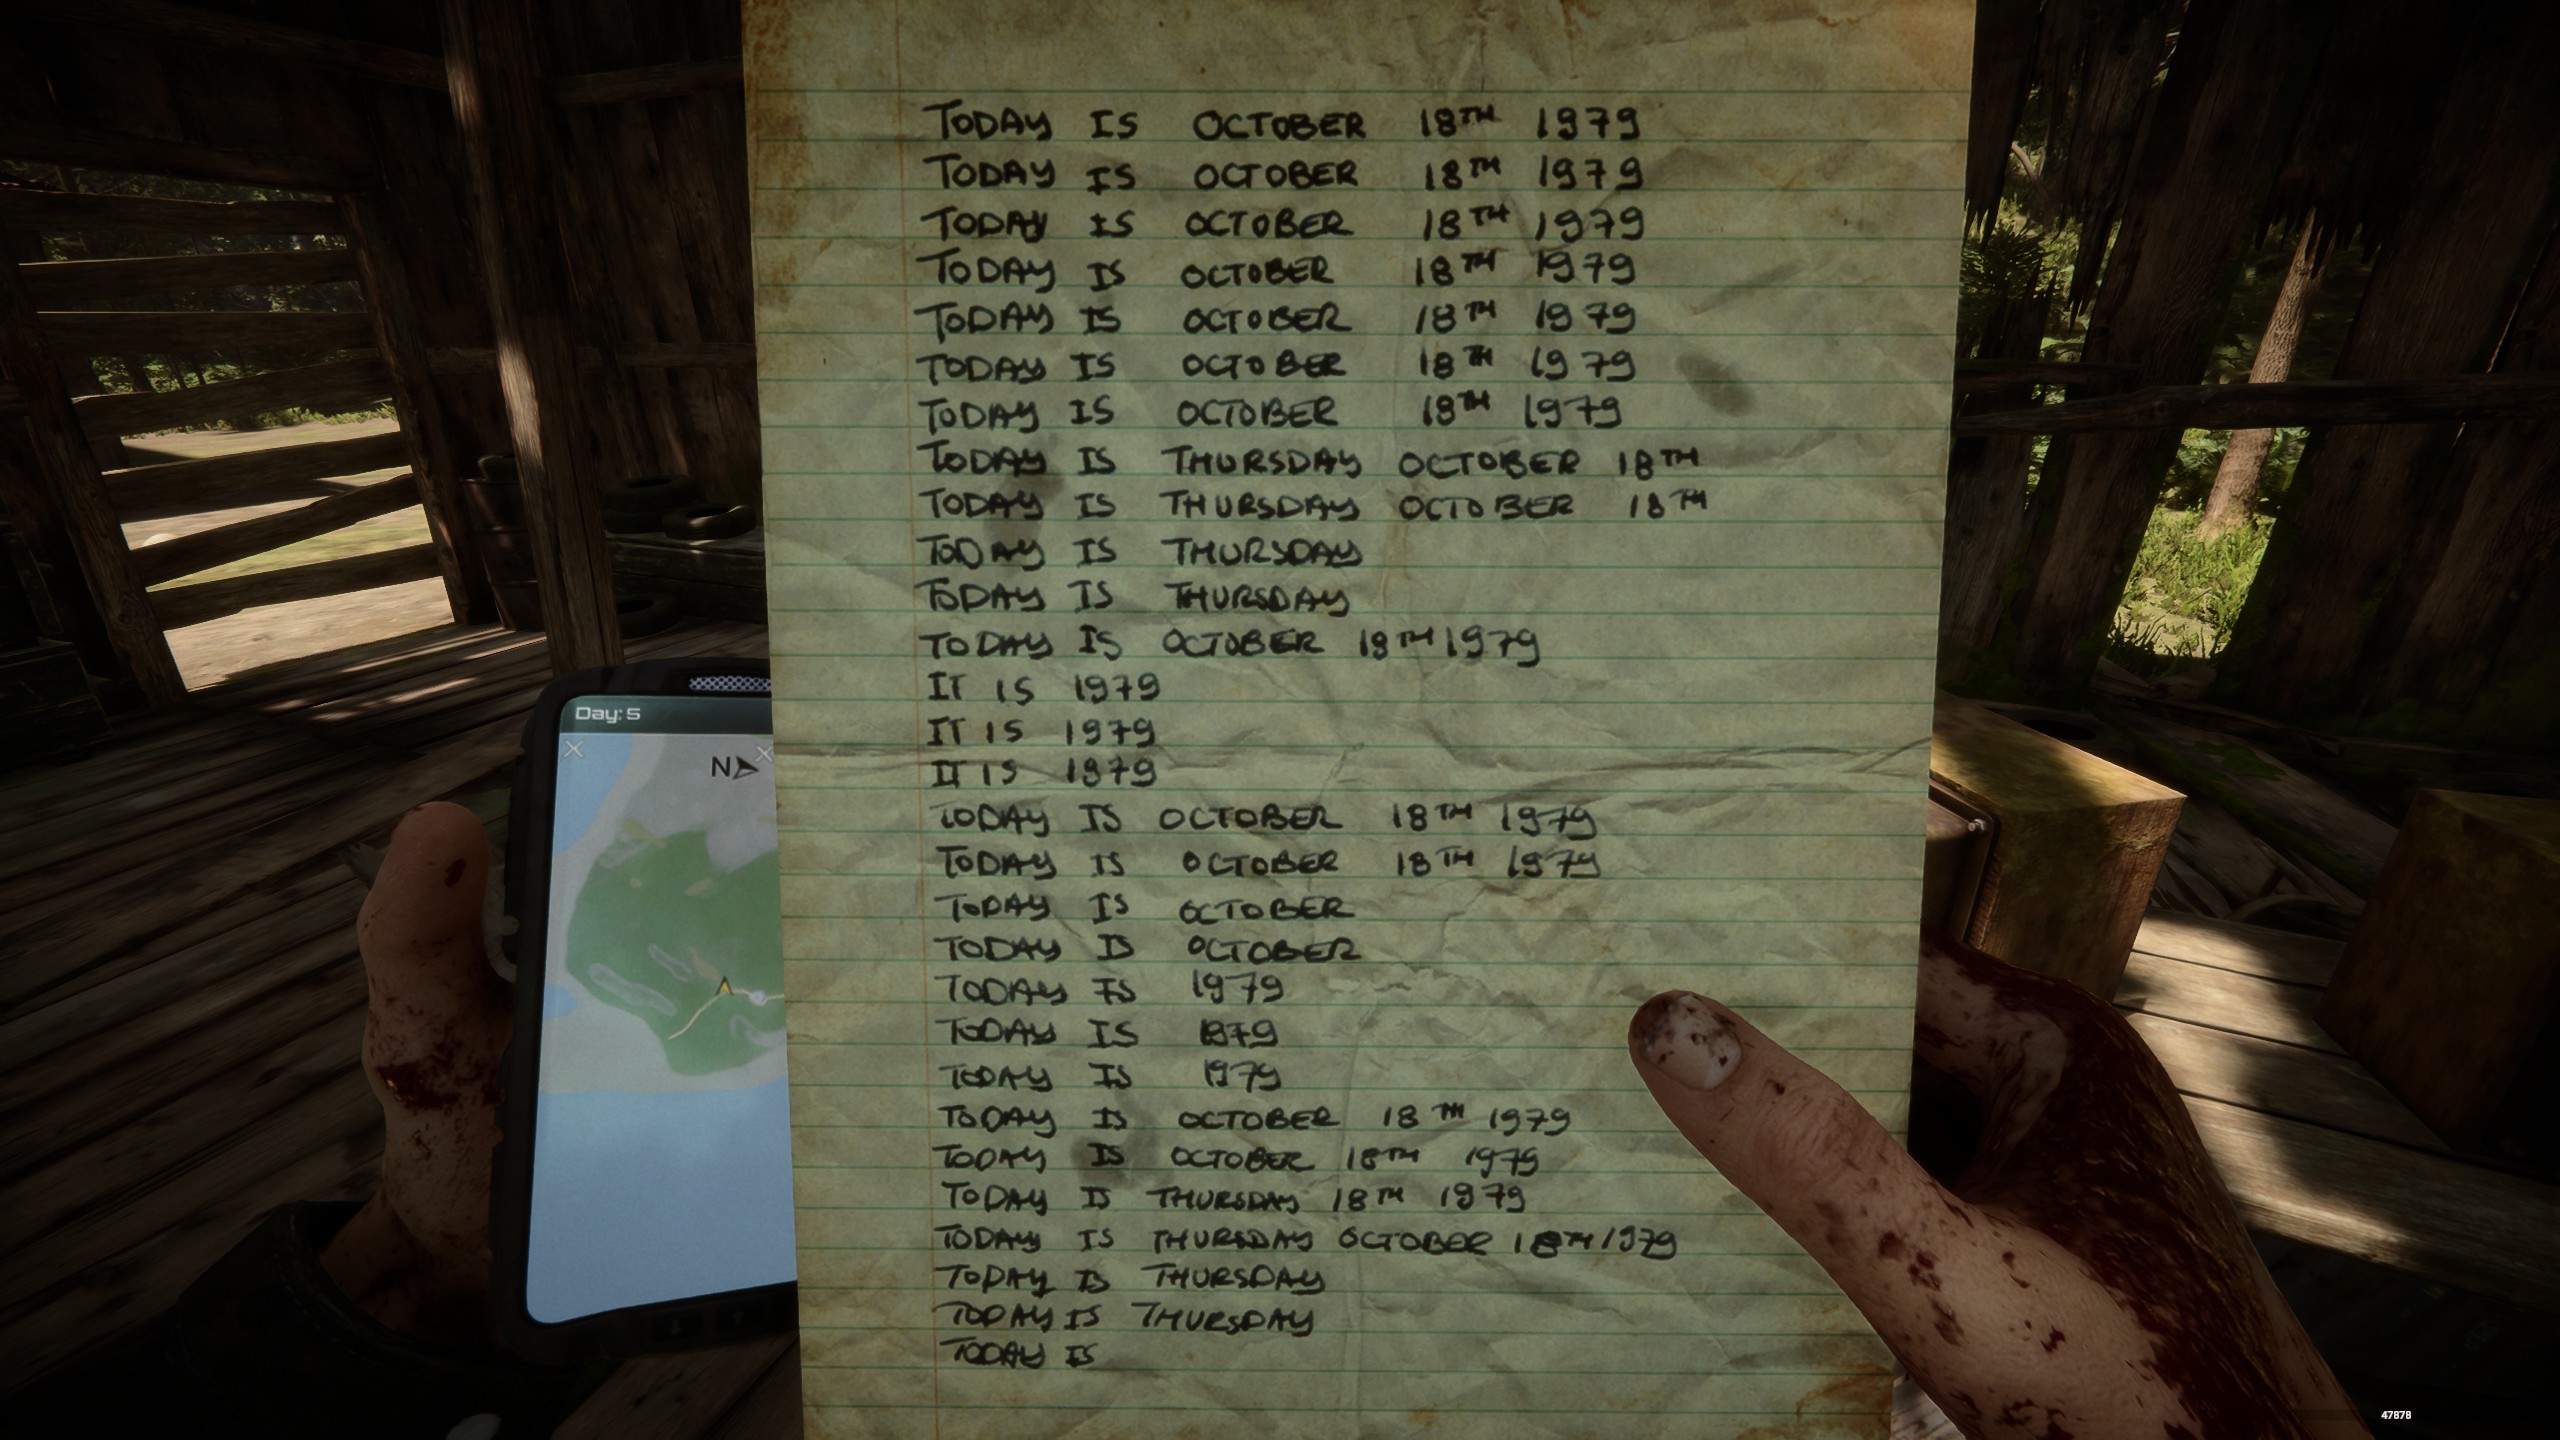 TODAY IS OCTOBER 18TH 1979
TODAY IS OCTOBER 18TH 1979
TODAY IS OCTOBER 18TH 1979
TODAY IS OCTOBER 18TH 1979
TODAY IS OCTOBER 18TH 1979
TODAY IS OCTOBER 18TH 1979
TODAY IS OCTOBER 18TH 1979
TODAY IS THURSDAY OCTOBER 18TH
TODAY IS THURSDAY OCTOBER 18TH
TODAY IS THURSDAY
TODAY IS THURSDAY
TODAY IS OCTOBER 18TH 1979
IT IS 1979
IT IS 1979
IT IS 1979
TODAY IS OCTOBER 18TH 1979
TODAY IS OCTOBER 18TH 1979
TODAY IS OCTOBER
TODAY IS OCTOBER
TODAY IS 1979
TODAY IS 1979
TODAY IS 1979
TODAY IS OCTOBER 18TH 1979
TODAY IS OCTOBER 18TH 1979
TODAY IS THURSDAY 18TH 1979
TODAY IS THURSDAY OCTOBER 18TH 1979
TODAY IS THURSDAY
TODAY IS THURSDAY
TODAY IS
Day: 5
N
47878